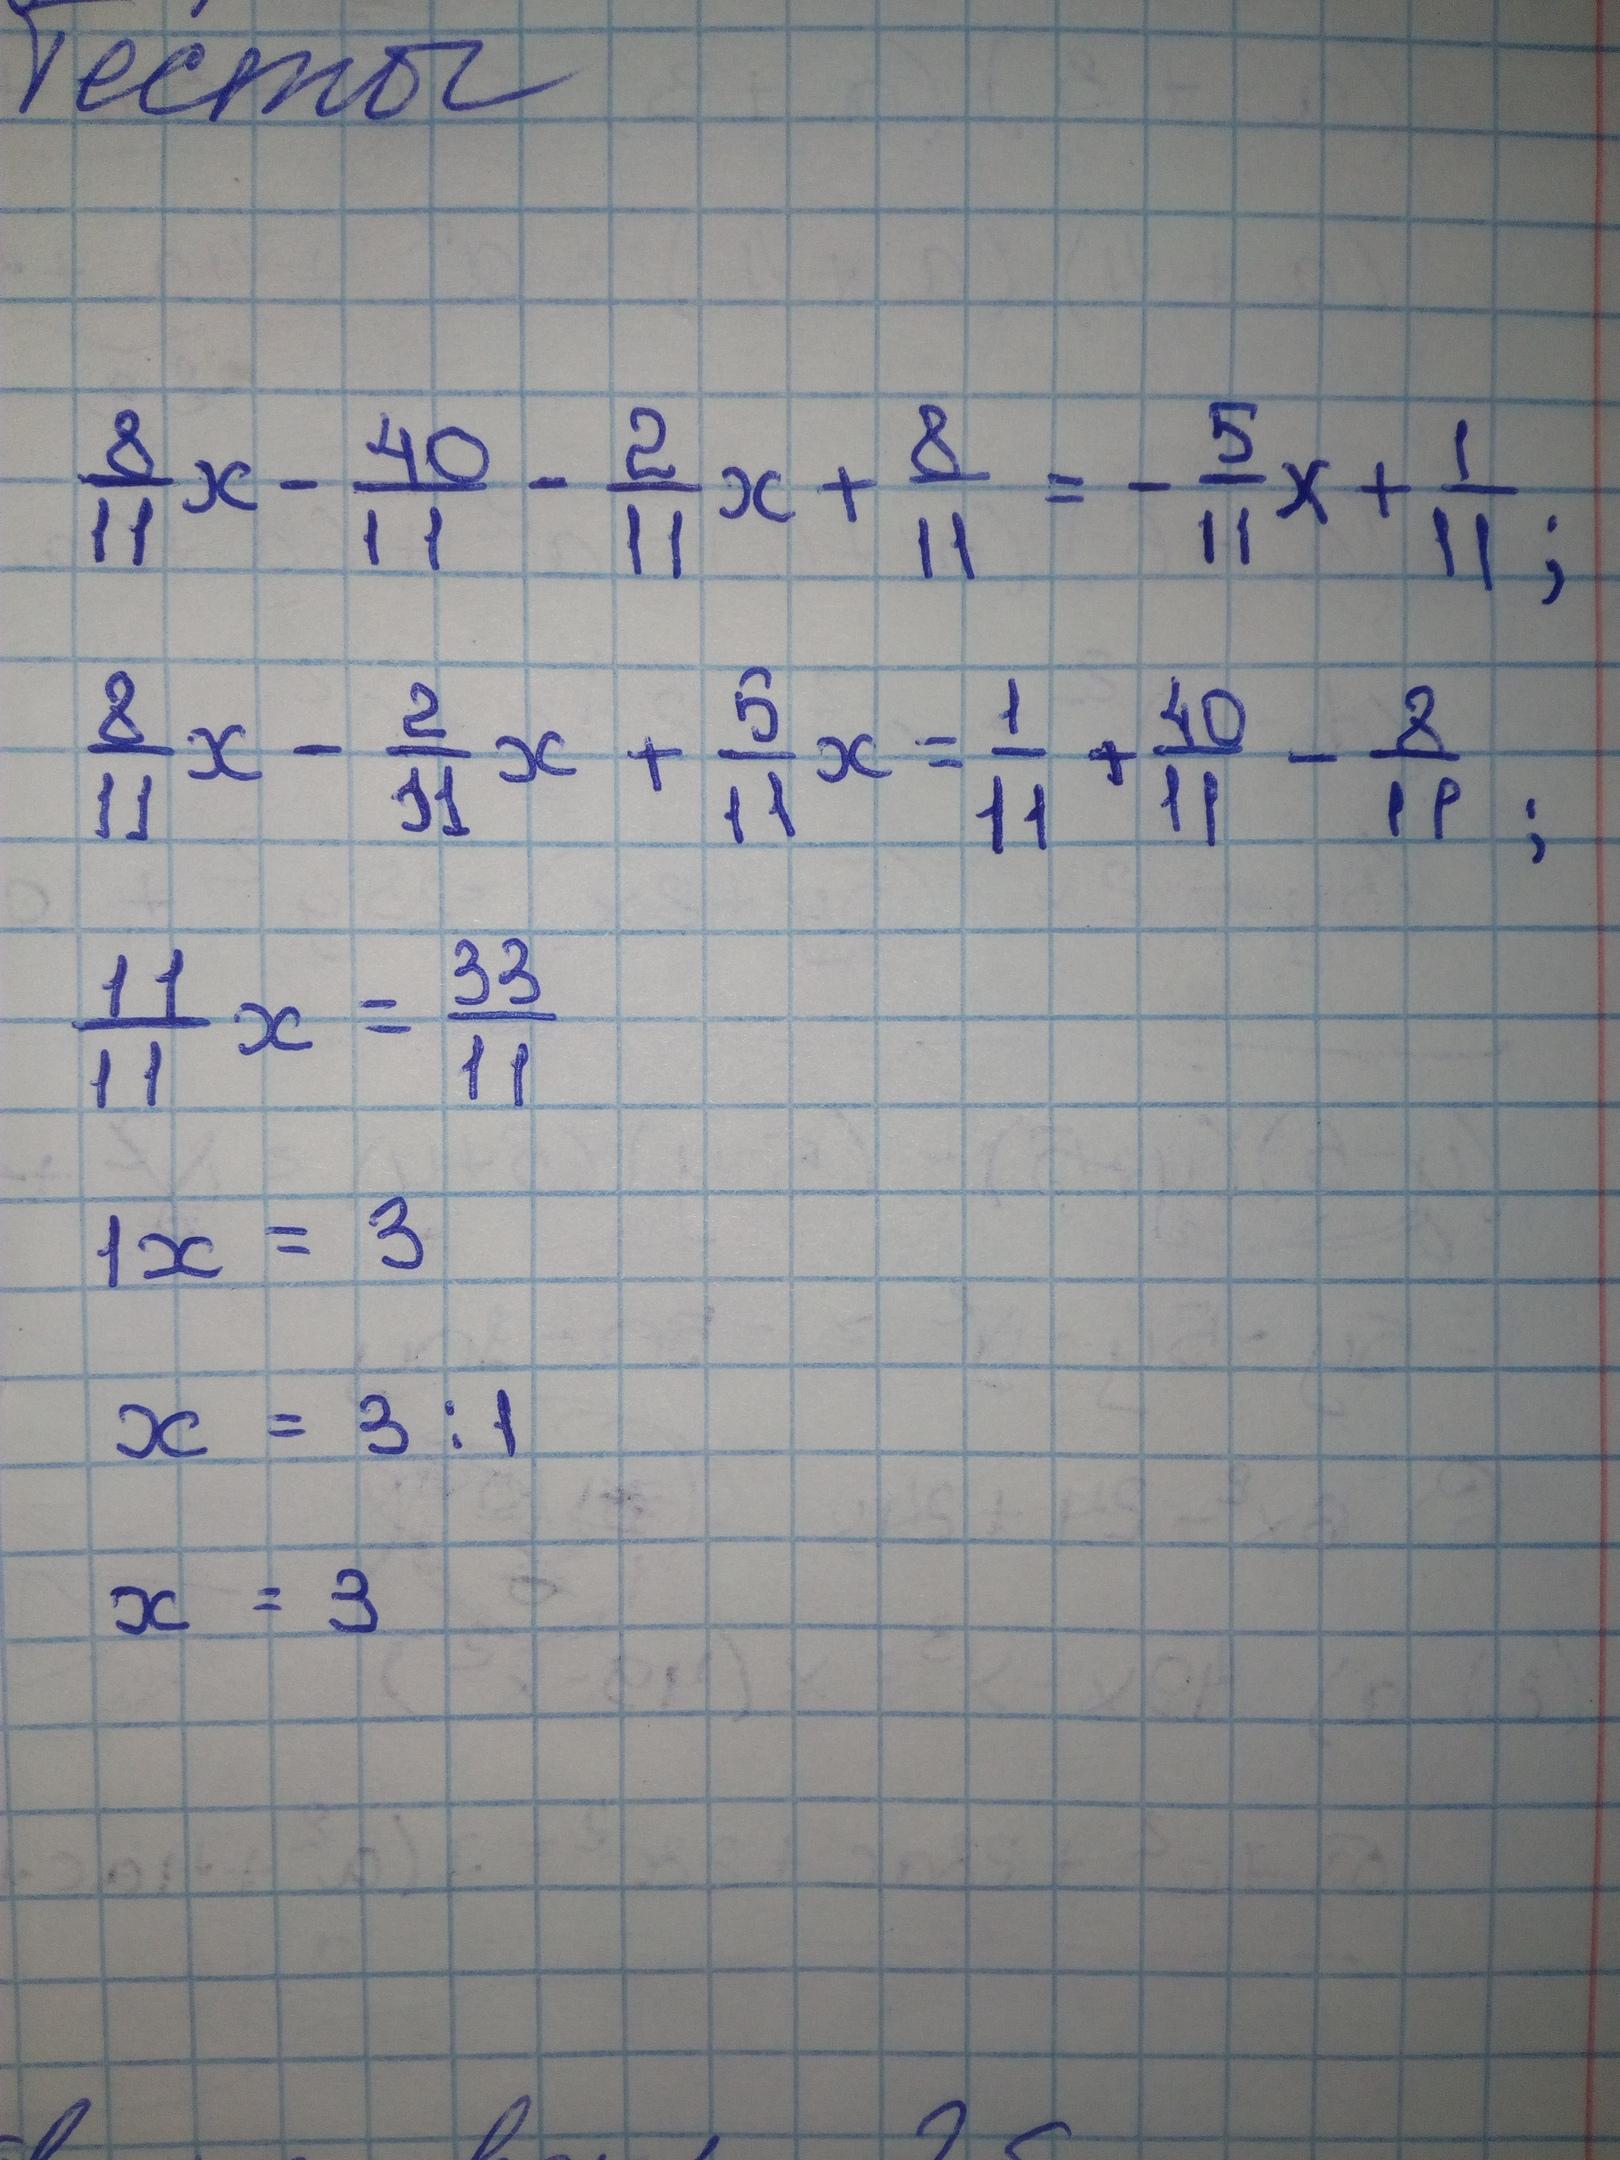 Тесты
8/11 x - 40/11 - 2/11 x + 8/11 = - 5/11 x + 1/11 ;
8/11 x - 2/11 x + 5/11 x = 1/11 + 40/11 - 8/11 ;
11/11 x = 33/11
1x = 3
x = 3 : 1
x = 3